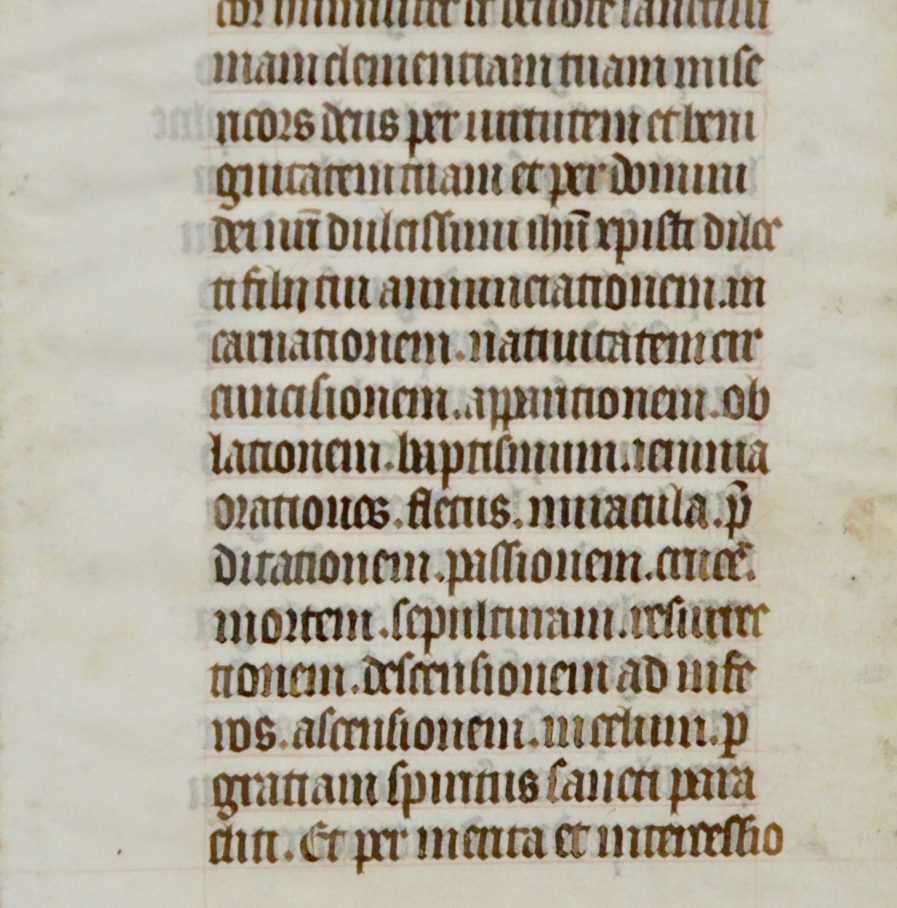 cor humiliter et deuote sanctissi
mam clementiam tuam mise
ricors deus per uirtutem et beni
gnitatem tuam et per domini
dei nr̄i dulcissimi ihū xpisti dilec
ti filii tui annunciationem. in
carnationem. natiuitatem cir
cuncisionem. apparitionem. ob
lationem. baptismum. ieiunia
orationes. fletus. miracula. p̄
dicationem. passionem. crucē.
mortem. sepulturam. resurrec
tionem. descensionem ad infe
ros. ascensionem. in celum. p
gratiam spiritus sancti para
cliti. Et per merita et intercessio